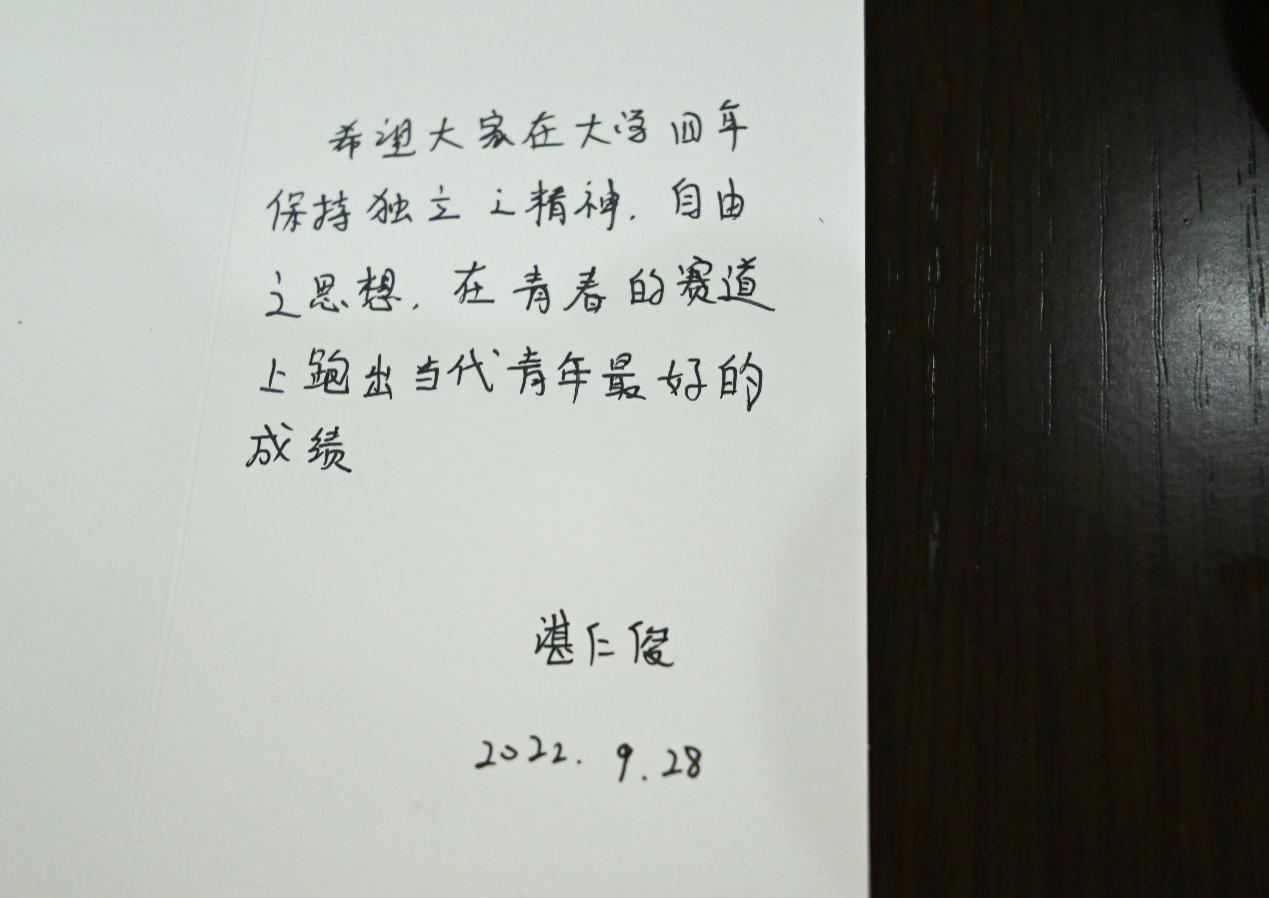 希望大家在大学四年
保持独立之精神，自由
之思想，在青春的赛道
上跑出当代青年最好的
成绩
湛仁俊
2022.9.28